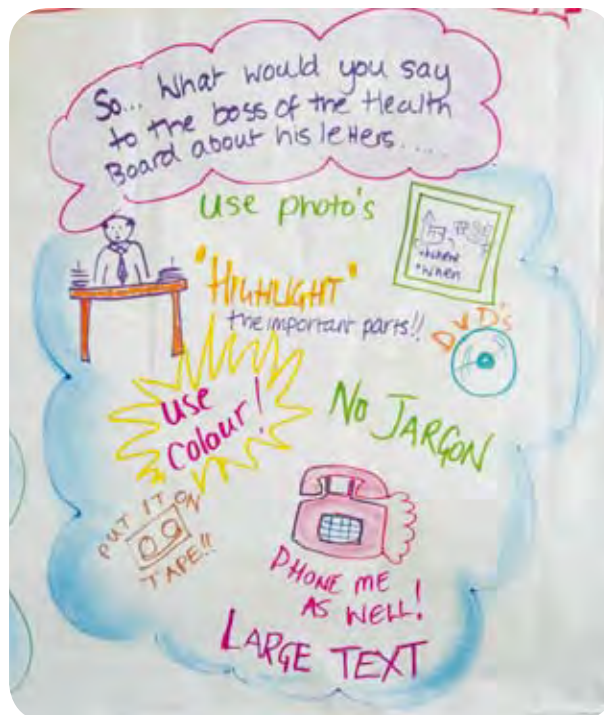 So... What would you say
to the boss of the Health
Board about his letters....
use photo's
*where
*when
"HIGHLIGHT"
the important parts!!
DVD's
use
colour!
No JARGON
PUT IT ON
TAPE!!
PHONE ME
AS WELL!
LARGE TEXT